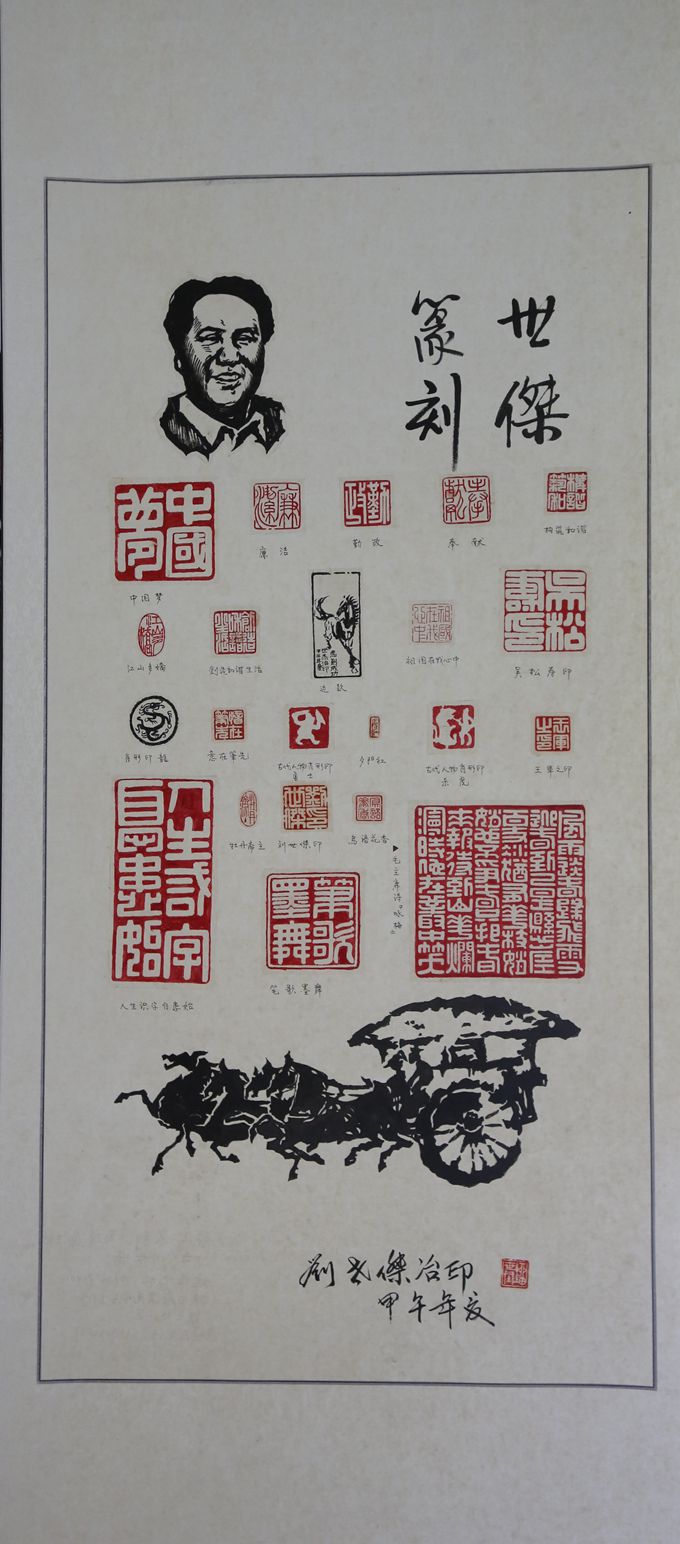 世傑
篆刻
中國夢
中国梦
廉洁
勤政
奉献
構築和諧
构筑和谐
江山多娇
創造和諧生活
创造和谐生活
边款
祖國在我心中
祖国在我心中
吴松寿印
肖形印 龍
意在筆先
古代人物肖形印
勇士
夕阳红
古代人物肖形印
王軍之印
王军之印
人生識字自憂始
人生识字自患始
牡丹斋主
劉世傑印
刘世傑印
鳥語花香
鸟语花香
毛主席诗《咏梅》
風雨送春歸飛雪
迎春到已是懸崖
百丈冰猶有花枝俏
俏也不爭春只把春
來報待到山花爛
漫時她在叢中笑
筆歌
墨舞
笔歌墨舞
劉世傑治印
甲午年夏